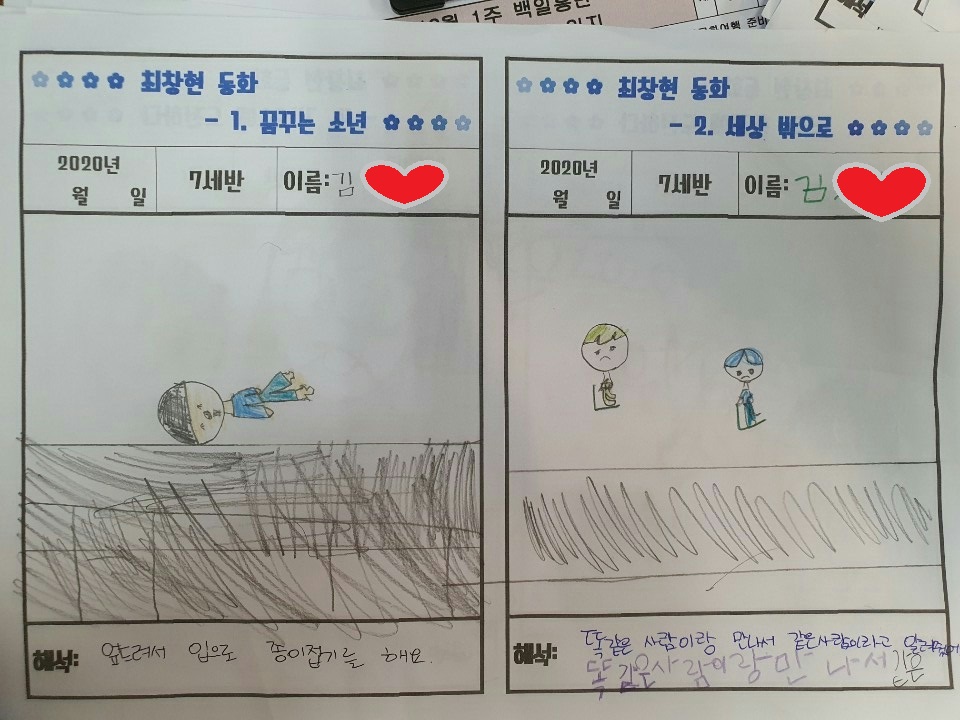 1주 백일홍반
일지
최창현 동화
- 1. 꿈꾸는 소년
2020년
월 일
7세반
이름: 김
해석: 엎드려서 입으로 종이접기를 해요.
최창현 동화
- 2. 세상 밖으로
2020년
월 일
7세반
이름: 김
해석: 똑같은 사람이랑 만나서 같은사람이라고
똑같은사람이랑만나서